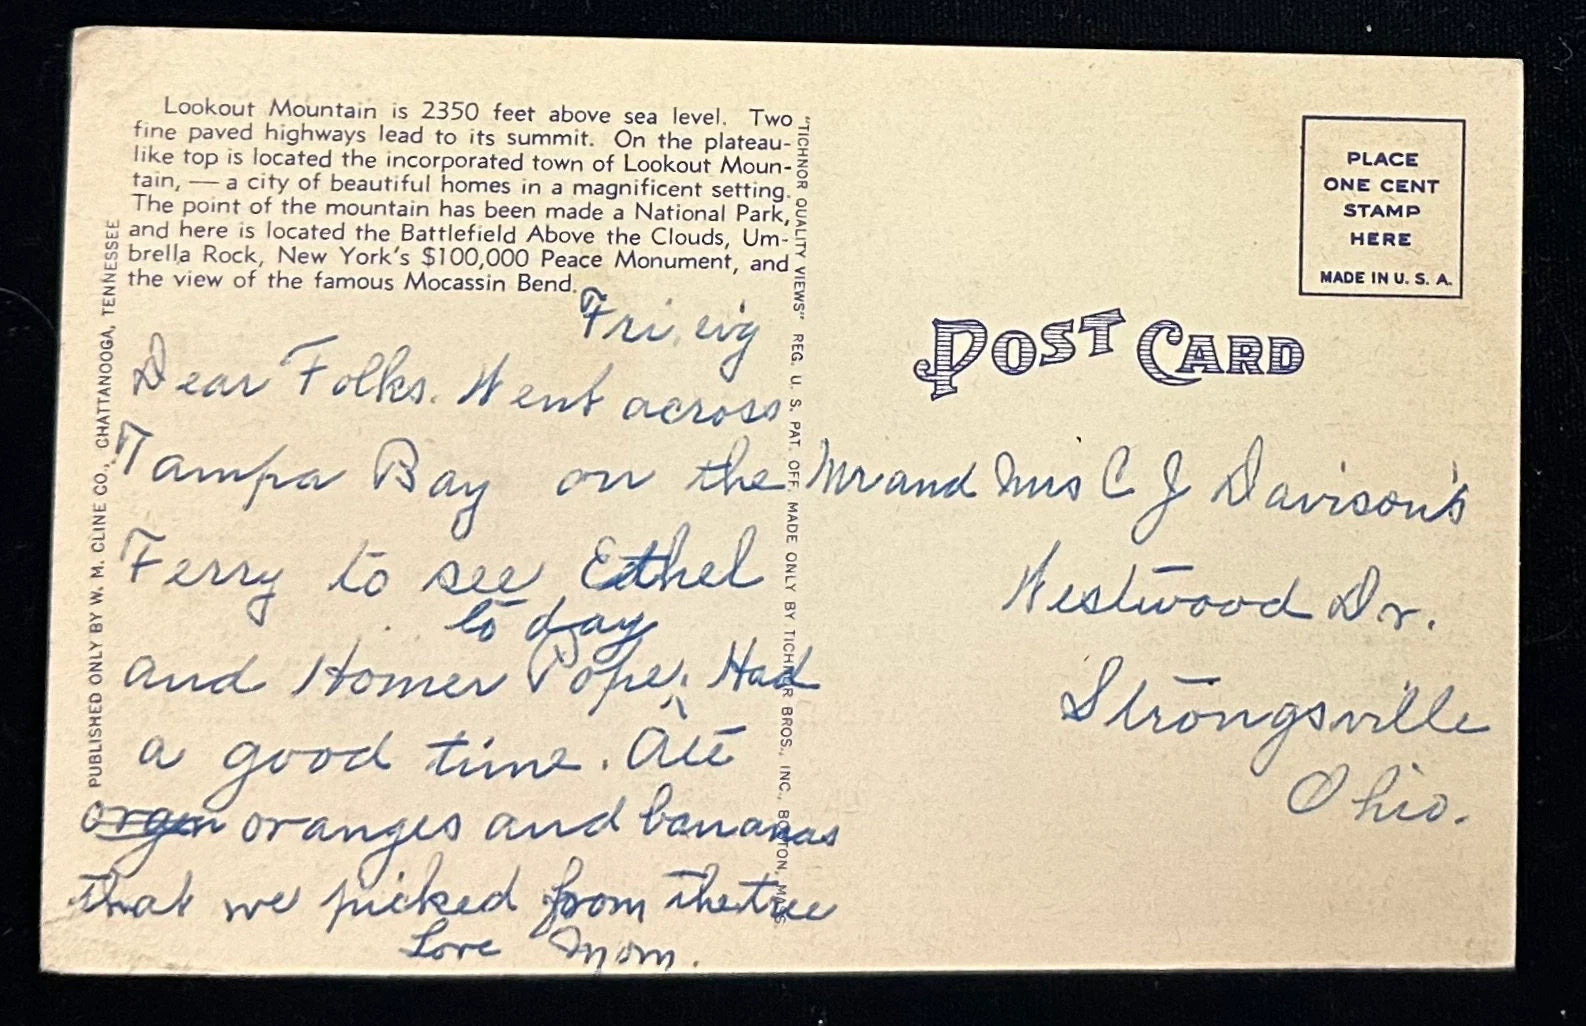 Lookout Mountain is 2350 feet above sea level. Two
fine paved highways lead to its summit. On the plateau-
like top is located the incorporated town of Lookout Moun-
tain, — a city of beautiful homes in a magnificent setting.
The point of the mountain has been made a National Park,
and here is located the Battlefield Above the Clouds, Um-
brella Rock, New York's $100,000 Peace Monument, and
the view of the famous Mocassin Bend.
PUBLISHED ONLY BY W. M. CLINE CO., CHATTANOOGA, TENNESSEE
Fri. evg
Dear Folks. Went across
Tampa Bay on the
Ferry to see Ethel
to day
and Homer Pope. Had
a good time. Ate
orgen oranges and bananas
that we picked from the tree
Love Mom.
"TICHNOR QUALITY VIEWS" REG. U. S. PAT. OFF. MADE ONLY BY TICHNOR BROS., INC., BOSTON, MASS.
PLACE
ONE CENT
STAMP
HERE
MADE IN U. S. A.
POST CARD
Mr and Mrs C J Davison's
Westwood Dr.
Strongsville
Ohio.